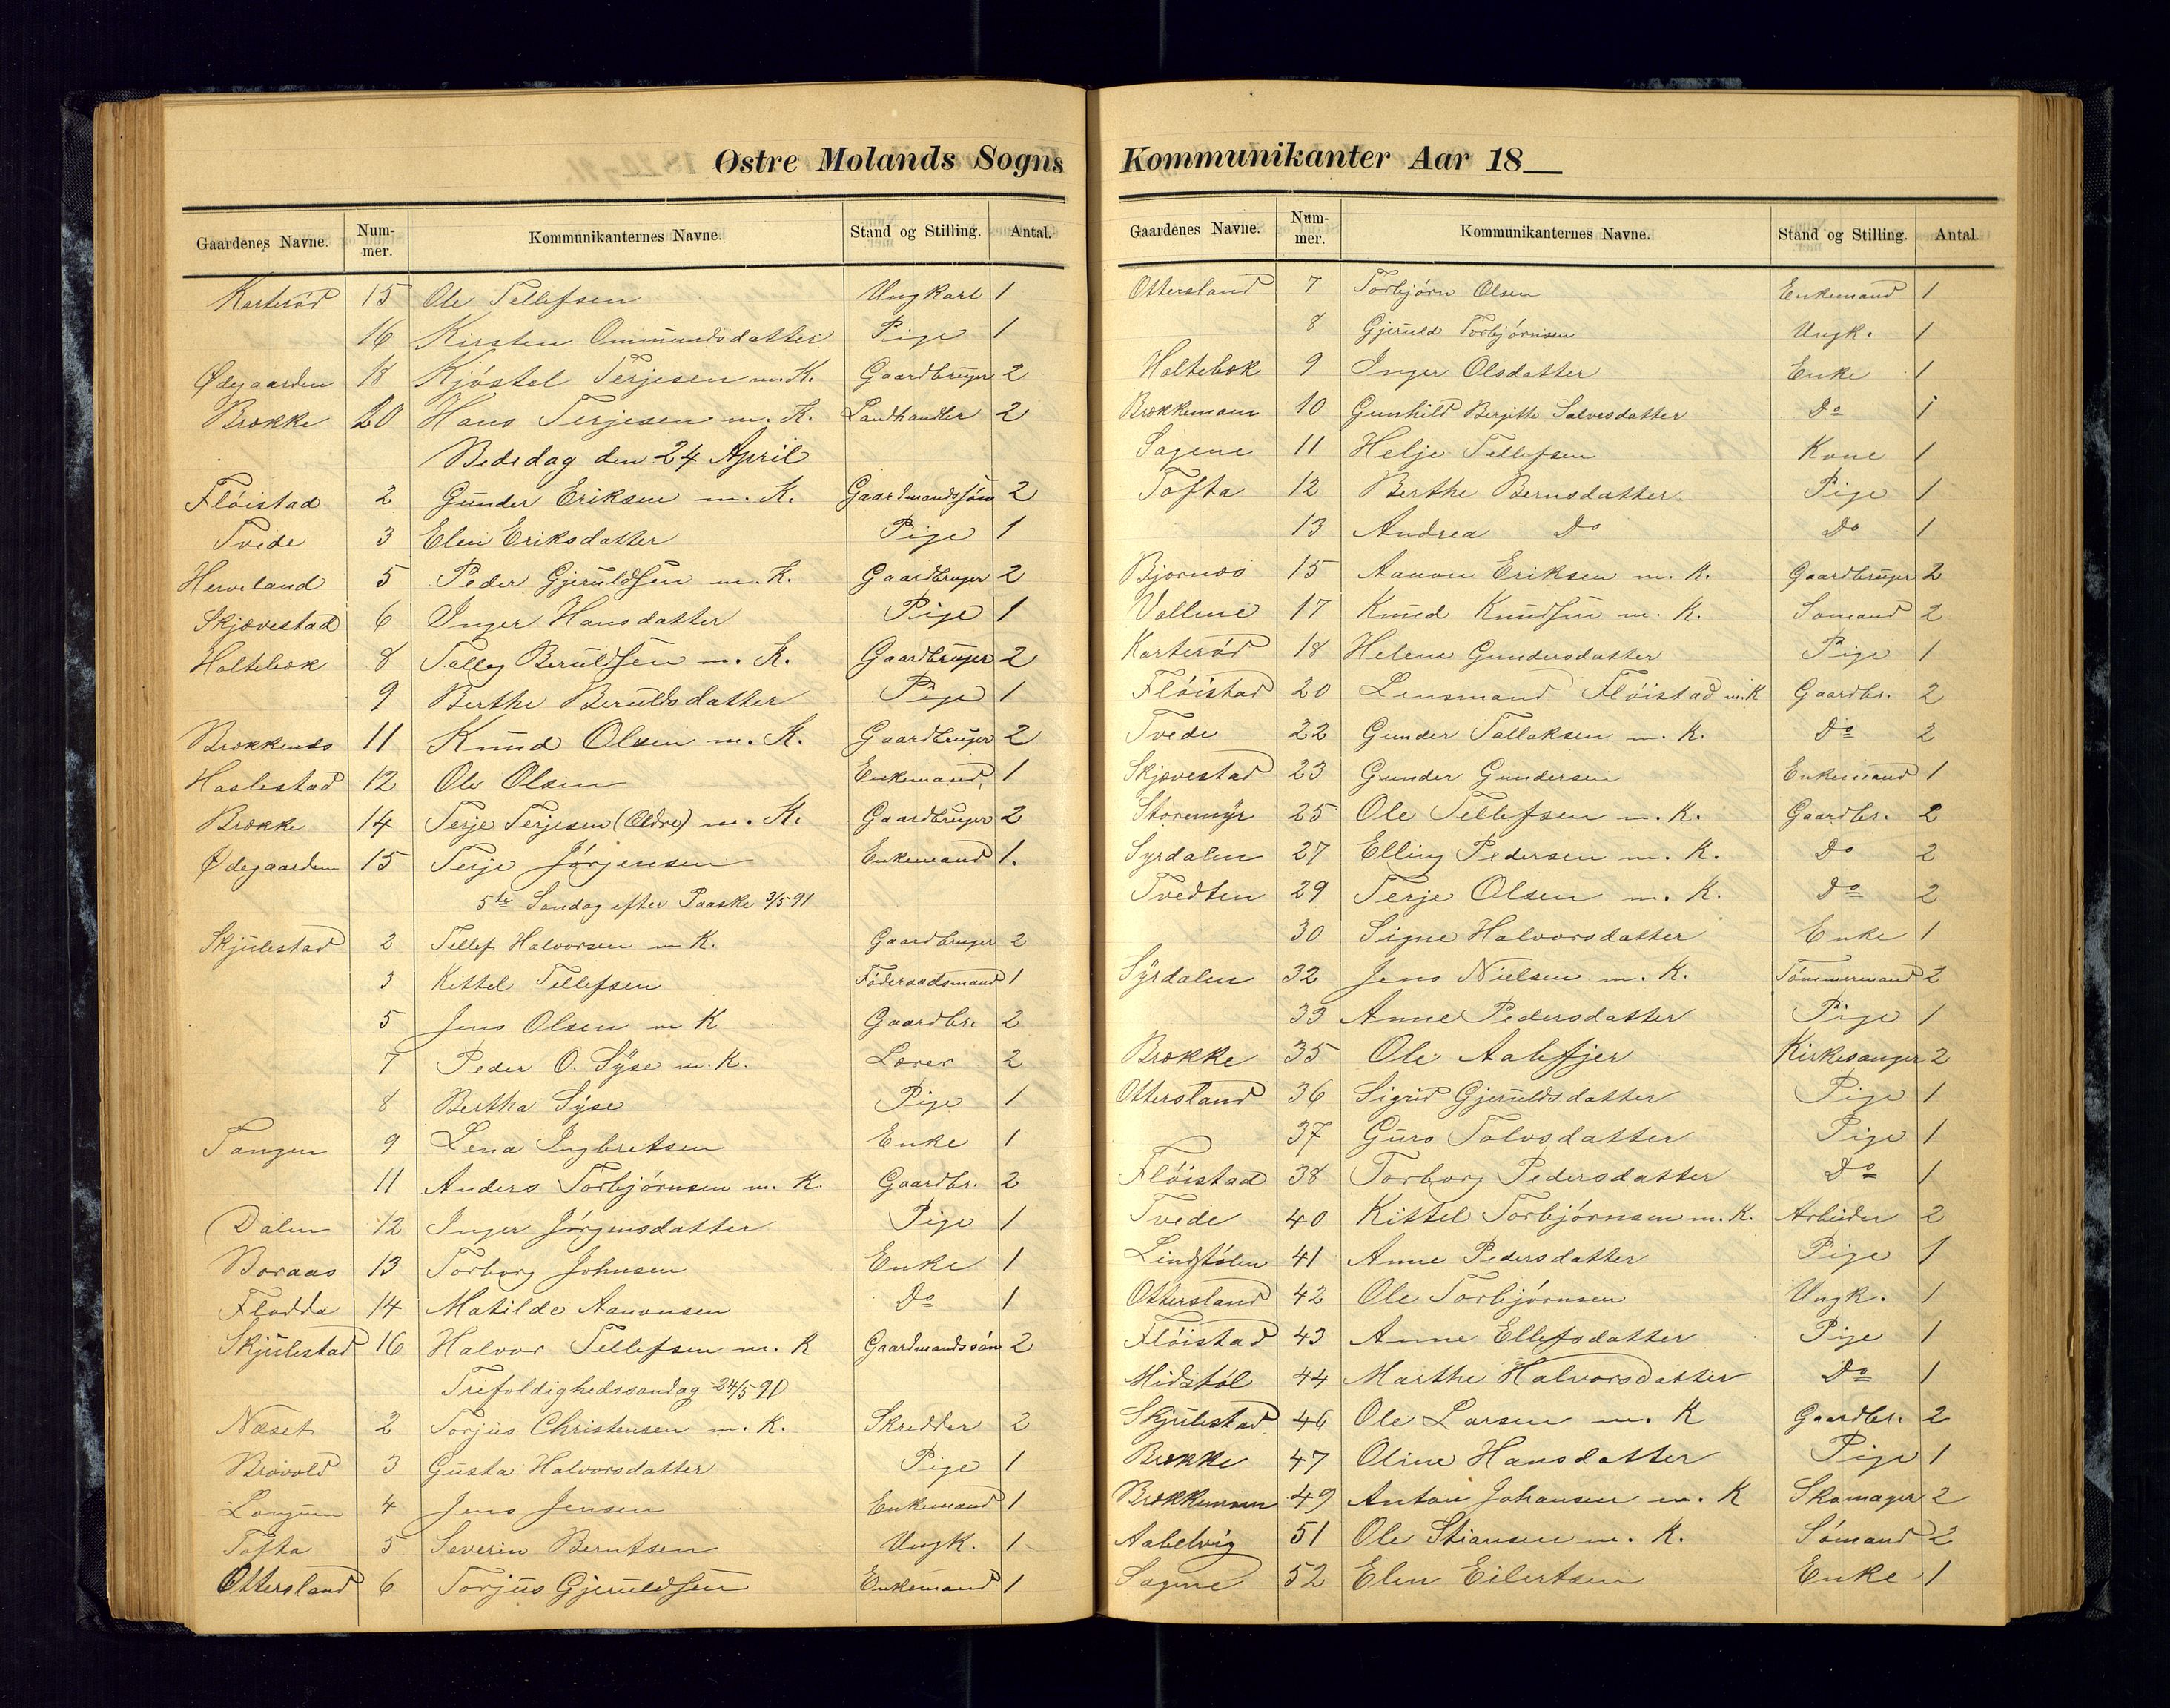 Østre Molands Sogns
Gaardenes Navne. Num-mer. Kommunikanternes Navne. Stand og Stilling. Antal.
Karterød 15 Ole Tellefsen Ungkarl 1
16 Kirsten Ommundsdatter Pige 1
Ødegaarden 18 Kjøstel Terjesen m. K. Gaardbruger 2
Brække 20 Hans Terjesen m. K. Landhandler 2
Bededag den 24 April
Fløistad 2 Gunder Eriksen m. K. Gaardmandssøn 2
Tvede 3 Elen Eriksdatter Pige 1
Herveland 5 Peder Gjeruldsen m. K. Gaardbruger 2
Skjævestad 6 Inger Hansdatter Pige 1
Holtebæk 8 Talleg Beruldsen m. K. Gaardbruger 2
9 Berthe Beruldsdatter Pige 1
11 Knud Olsen m. K. Gaardbruger 2
Haslestad 12 Ole Olsen Enkemand 1
Brække 14 Terje Terjesen (Eldre) m. K. Gaardbruger 2
Ødegaarden 15 Terje Jørgensen Enkemand 1.
5te Søndag efter Paaske 3/5 91
Skjulestad 2 Tellef Halvorsen m K. Gaardbruger 2
3 Kittel Tellefsen Føderaadsmand 1
5 Jens Olsen m K Gaardbr. 2
7 Peder O. Syse m. K. Lærer 2
8 Bertha Syse Pige 1
Tangen 9 Lena Ingbretsen Enke 1
11 Anders Torbjørnsen m. K. Gaardbr. 2
Dalen 12 Inger Jørgensdatter Pige 1
Boraas 13 Torborg Johnsen Enke 1
Flødda 14 Matilde Aanonsen Do 1
Skjulestad 16 Halvor Tellefsen m. K Gaardmandssøn 2
Trefoldighedssøndag 24/5 91
Næset 2 Torjus Christensen m. K. Skredder 2
Brovold 3 Gusta Halvorsdatter Pige 1
Longum 4 Jens Jensen Enkemand 1
Tofta 5 Severin Berntsen Ungk. 1
Ottersland 6 Torjus Gjeruldsen Enkemand 1
Kommunikanter Aar 18
Gaardenes Navne. Num-mer. Kommunikanternes Navne. Stand og Stilling. Antal.
Ottersland 7 Torbjørn Olsen Enkemand 1
8 Gjeruld Torbjørnsen Ungk. 1
Holtebæk 9 Inger Olsdatter Enke 1
Brækkemoen 10 Gunhild Bergitte Salvesdatter Do 1
Sagene 11 Helje Tellefsen Kone 1
Tofta 12 Berthe Bernsdatter Pige 1
13 Andrea Do Do 1
Bjørnaas 15 Aanon Eriksen m. K. Gaardbruger 2
Vollene 17 Knud Knudsen m. K. Sømand 2
Karterød 18 Helene Gundersdatter Pige 1
Fløistad 20 Lensmand Fløistad m. K Gaardbr. 2
Tvede 22 Gunder Tallaksen m. K. Do 2
Skjævestad 23 Gunder Gundersen Enkemand 1
Storemyr 25 Ole Tellefsen m. K. Gaardbr. 2
Syrdalen 27 Elling Pedersen m. K. Do 2
Tvedten 29 Terje Olsen m. K. Do 2
30 Signe Halvorsdatter Enke 1
Syrdalen 32 Jens Nielsen m. K. Tømmermand 2
33 Anne Pedersdatter Pige 1
Brække 35 Ole Aalefjer Kirkesanger 2
Ottersland 36 Sigrid Gjeruldsdatter Pige 1
37 Guro Tolvsdatter Pige 1
Fløistad 38 Torborg Pedersdatter Do 1
Tvede 40 Kittel Torbjørnsen m. K. Arbeider 2
Lindstølen 41 Anne Pedersdatter Pige 1
Ottersland 42 Ole Torbjørnsen Ungk. 1
Fløistad 43 Anne Ellefsdatter Pige 1
Midstøl 44 Marthe Halvorsdatter Do 1
Skjulestad 46 Ole Larsen m. K Gaardbr. 2
Brække 47 Oline Hansdatter Pige 1
Brækkemoen 49 Anton Johansen m. K Skomager 2
Aabelvig 51 Ole Stiansen m. K. Sømand 2
Sagene 52 Elen Eilertsen Enke 1